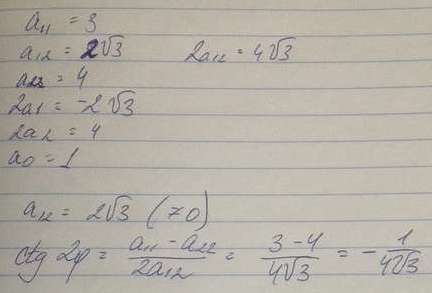 a₁₁ = 3
a₁₂ = 2√3 2a₁₂ = 4√3
a₂₂ = 4
2a₁ = -2√3
2a₂ = 4
a₀ = 1
a₁₂ = 2√3 (≠0)
ctg 2φ = (a₁₁ - a₂₂)/(2a₁₂) = (3-4)/(4√3) = -1/(4√3)